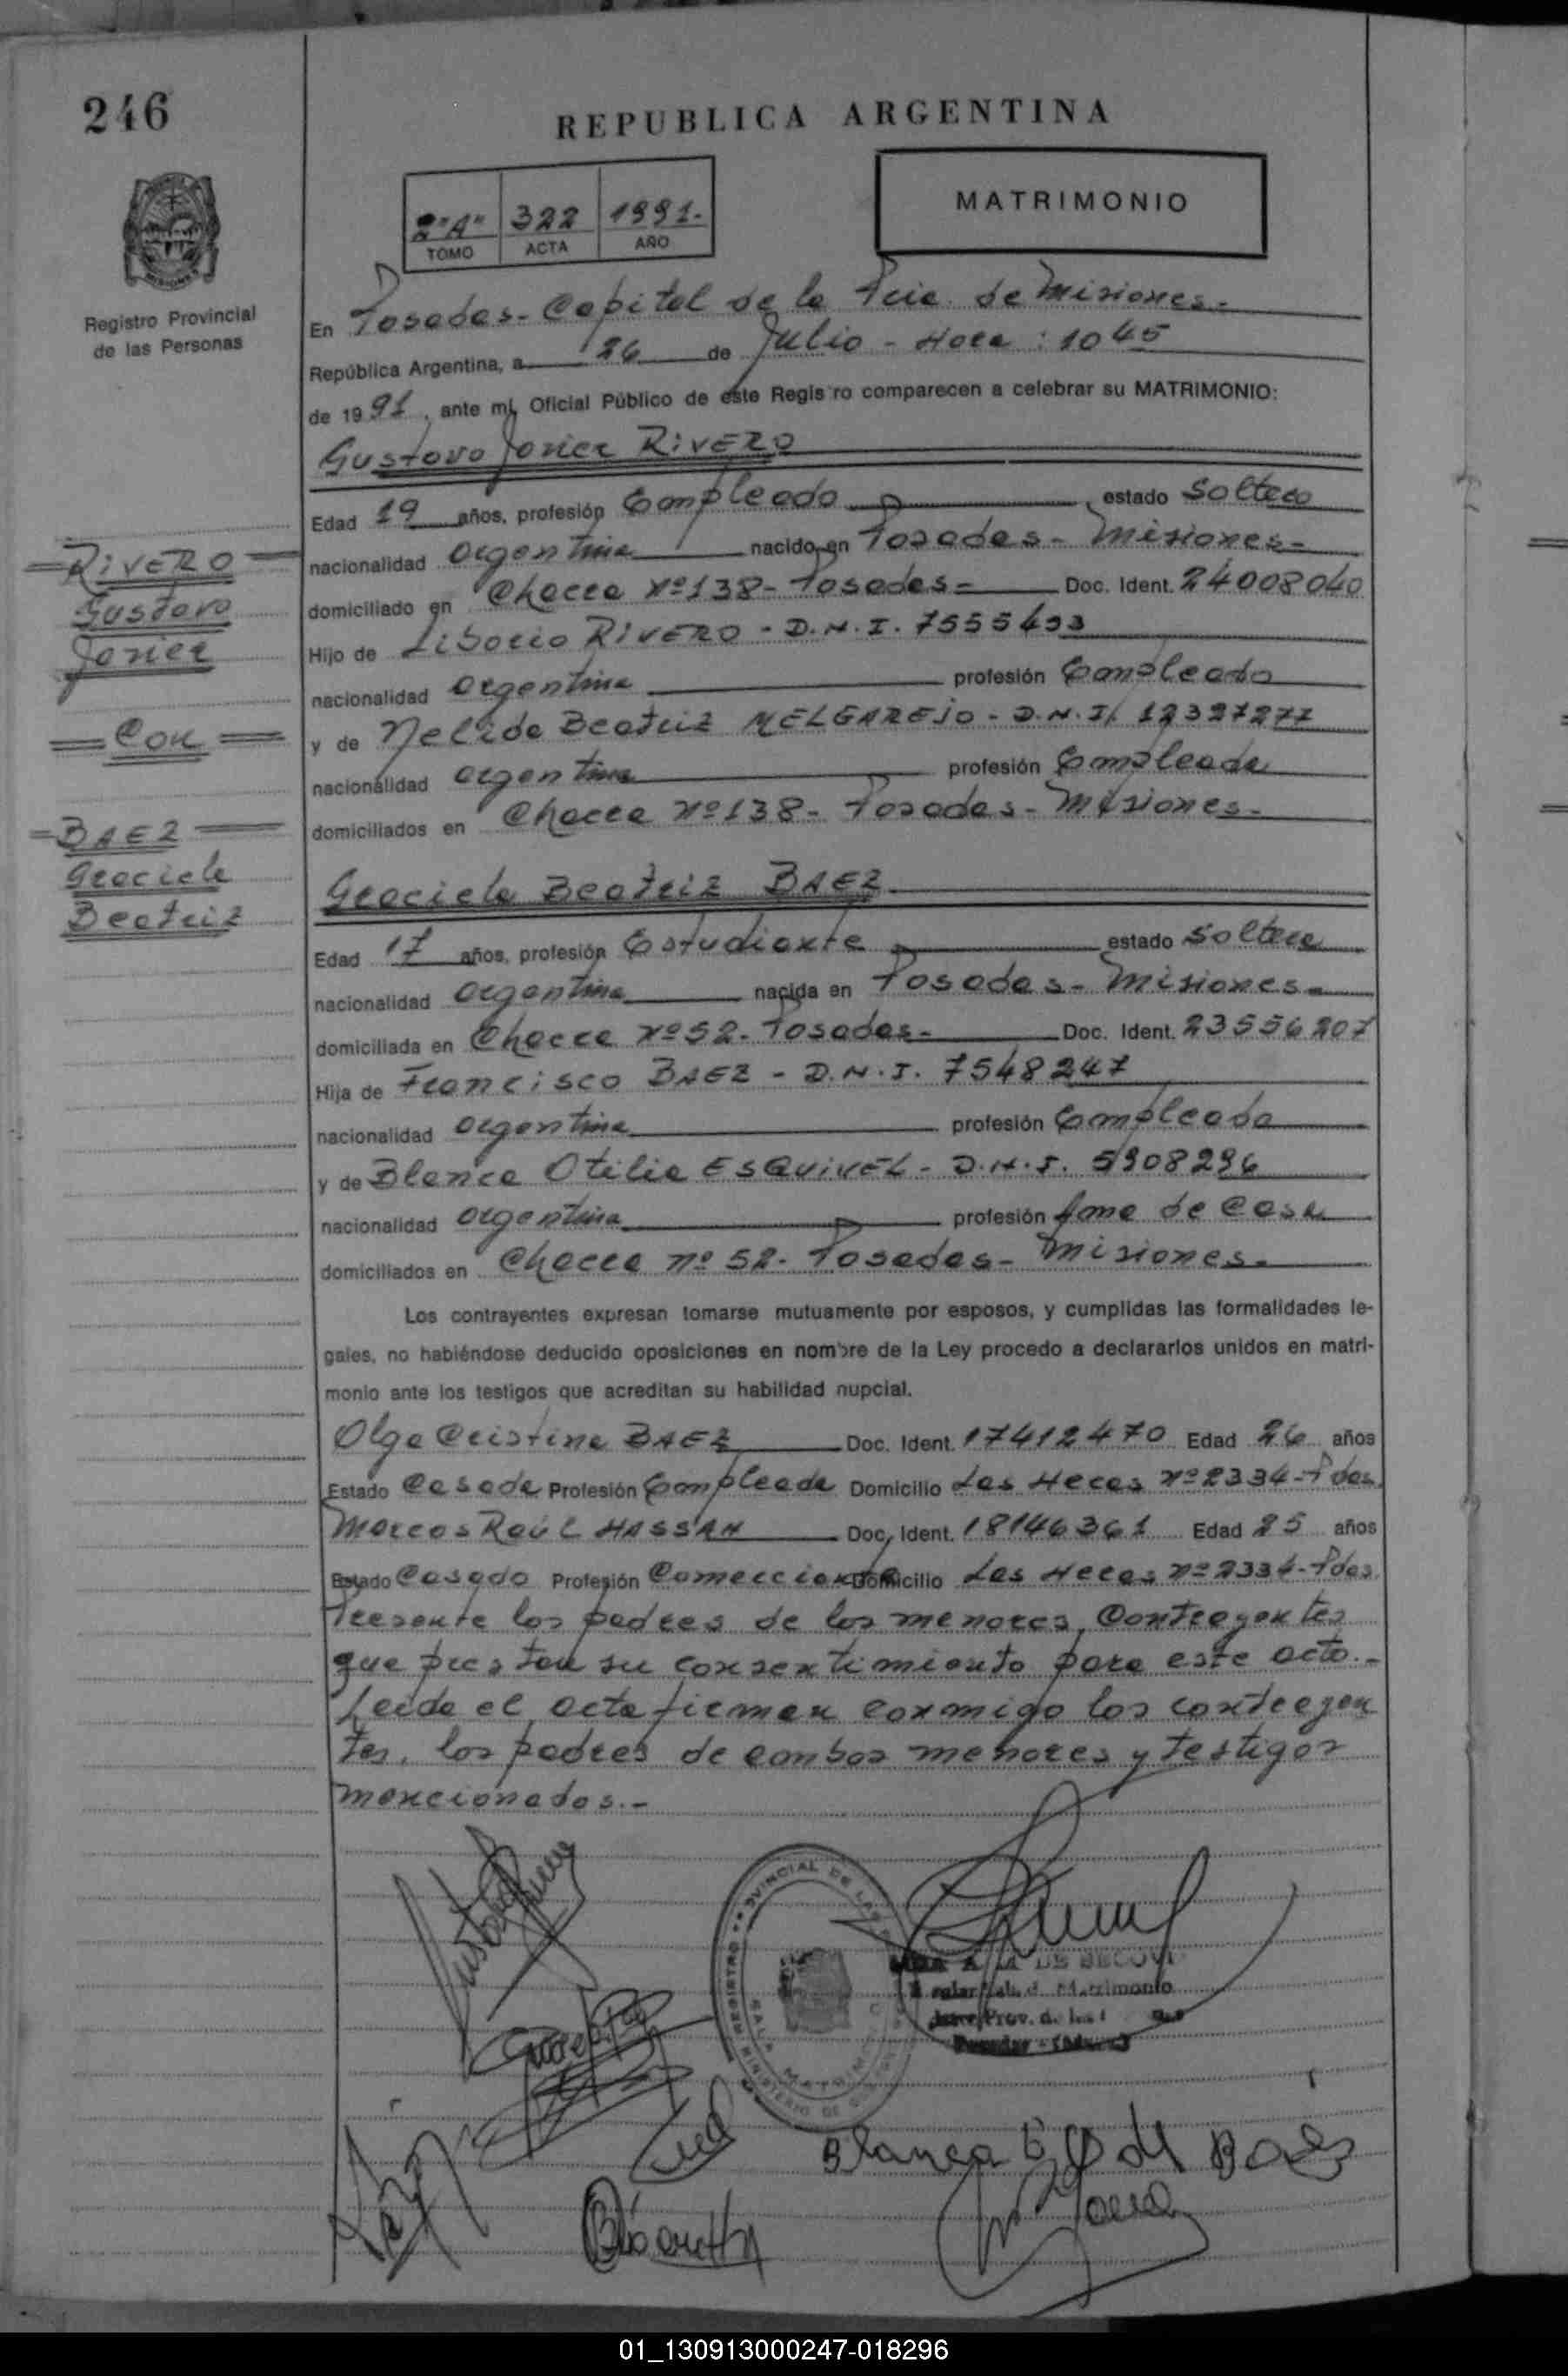 246
REPUBLICA ARGENTINA
2"A" 322 1991.-
TOMO ACTA AÑO
MATRIMONIO
Registro Provincial
de las Personas
En Posadas- Capital de la Pcia. de Misiones.-
República Argentina, a 26 de Julio - Hora : 1045
de 1991, ante mí, Oficial Público de este Registro comparecen a celebrar su MATRIMONIO:
Gustavo Javier RIVERO
Edad 19 años, profesión Empleado estado Soltero
nacionalidad argentina nacido en Posadas- Misiones-
domiciliado en Chacra Nº138- Posadas- Doc. Ident. 24008040
Hijo de Liborio RIVERO - D.N.I. 7555
nacionalidad argentina profesión Empleado
y de Nelida Beatriz MELGAREJO - D.N.I. 12327277
nacionalidad argentina profesión Empleada
domiciliados en Chacra Nº138- Posadas- Misiones-
RIVERO
Gustavo
Javier
Con
BAEZ
Graciela
Beatriz
Graciela Beatriz BAEZ
Edad 17 años, profesión Estudiante estado Soltera
nacionalidad argentina nacida en Posadas- Misiones-
domiciliada en Chacra Nº52- Posadas- Doc. Ident. 23556207
Hija de Francisco BAEZ - D.N.I. 7548247
nacionalidad argentina profesión Empleado
y de Blanca Otilia ESQUIVEL - D.N.I. 5908296
nacionalidad argentina profesión Ama de Casa
domiciliados en Chacra nº 52- Posadas- Misiones-
Los contrayentes expresan tomarse mutuamente por esposos, y cumplidas las formalidades le-
gales, no habiéndose deducido oposiciones en nombre de la Ley procedo a declararlos unidos en matri-
monio ante los testigos que acreditan su habilidad nupcial.
Olga Cristina BAEZ Doc. Ident. 17412470 Edad 26 años
Estado Casada Profesión Empleada Domicilio Las Heras Nº2334-Pdas.
Marcos Raúl HASSAN Doc. Ident. 18146361 Edad 25 años
Estado Casado Profesión Comerciante Domicilio Las Heras Nº2334-Pdas.
Presente los padres de los menores, Contrayentes
que prestan su consentimiento para este acto.-
Leída el acta firman conmigo los contrayen
tes, los padres de ambos menores y testigos
mencionados.-
REGISTRO PROVINCIAL DE LAS
SALA MATRIM
MINISTERIO DE
Matrimonio
Prov. d. las
Blanca E de Baez
01_130913000247-018296